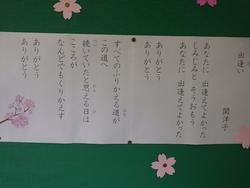 出逢い
関洋子
あなたに 出逢えてよかった
しみじみと そうおもう
あなたに 出逢えてよかった
ありがとう
ありがとう
すべてのふりかえる道が
この道へ
続いていたと思える日は
こころが
なんどでもくりかえす
ありがとう
ありがとう